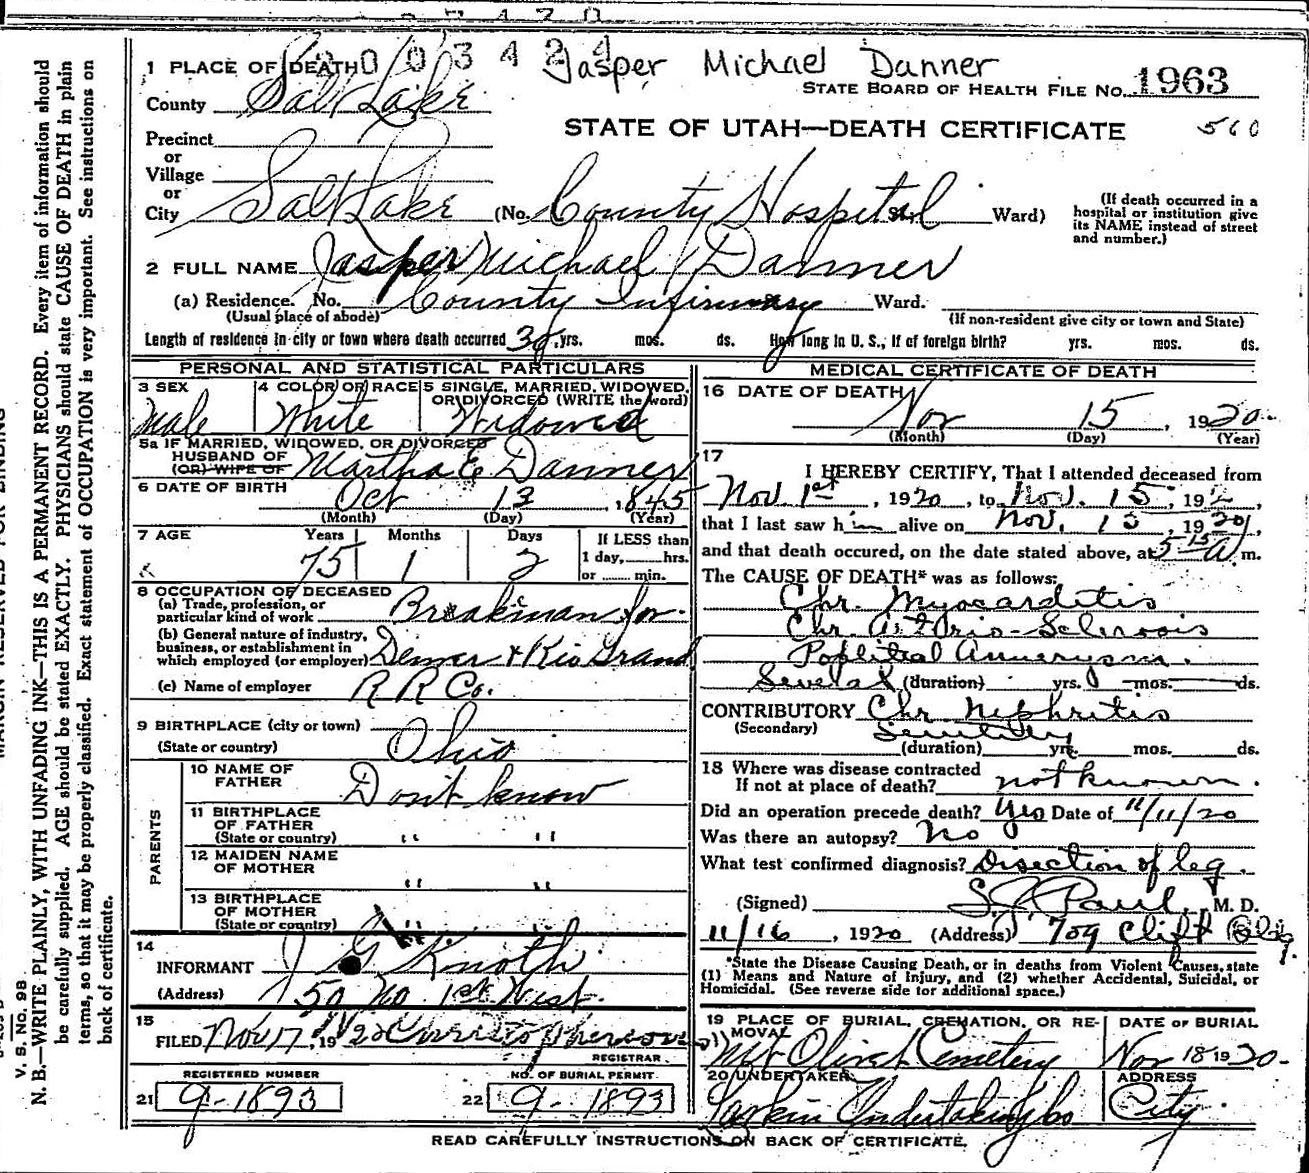 2003424 Jasper Michael Danner
STATE BOARD OF HEALTH FILE NO. 1963
1 PLACE OF DEATH
County Salt Lake
STATE OF UTAH—DEATH CERTIFICATE 560
Precinct
or
Village
or
City Salt Lake (No. County Hospital St. Ward)
(If death occurred in a hospital or institution give its NAME instead of street and number.)
2 FULL NAME Jasper Michael Danner
(a) Residence. No. County Infirmary Ward.
(Usual place of abode) (If non-resident give city or town and State)
Length of residence in city or town where death occurred yrs. mos. ds. How long in U. S., if of foreign birth? yrs. mos. ds.
PERSONAL AND STATISTICAL PARTICULARS
3 SEX 4 COLOR OR RACE 5 SINGLE, MARRIED, WIDOWED, OR DIVORCED (WRITE the word)
Male White Widowed
5a IF MARRIED, WIDOWED, OR DIVORCED
HUSBAND OF
(OR) WIFE OF Martha E Danner
6 DATE OF BIRTH Oct 13, 1845
(Month) (Day) (Year)
7 AGE Years Months Days If LESS than
1 day, hrs.
75 1 2 or min.
8 OCCUPATION OF DECEASED
(a) Trade, profession, or
particular kind of work Breakman for
(b) General nature of industry,
business, or establishment in
which employed (or employer) Denver & Rio Grand
(c) Name of employer R R Co.
9 BIRTHPLACE (city or town)
(State or country) Ohio
PARENTS
10 NAME OF
FATHER Don't know
11 BIRTHPLACE
OF FATHER
(State or country) " "
12 MAIDEN NAME
OF MOTHER " "
13 BIRTHPLACE
OF MOTHER
(State or country) " "
14
INFORMANT J G Knoth
(Address) 150 No. 1st West.
15
FILED Nov 17, 192
REGISTRAR.
REGISTERED NUMBER NO. OF BURIAL PERMIT
21 9-1893 22 9-1893
MEDICAL CERTIFICATE OF DEATH
16 DATE OF DEATH
Nov 15, 1920
(Month) (Day) (Year)
17
I HEREBY CERTIFY, That I attended deceased from
Nov 1st, 1920, to Nov. 15, 192
that I last saw him alive on Nov. 15, 1920,
and that death occured, on the date stated above, at 5 15 A m.
The CAUSE OF DEATH* was as follows:
Chr. Myocarditis
Chr. Arterio-Sclerosis
Popliteal Anuerysm.
Several (duration) yrs. mos. ds.
CONTRIBUTORY Chr Nephritis
(Secondary)
(duration) yrs. mos. ds.
18 Where was disease contracted
If not at place of death? not known.
Did an operation precede death? Yes Date of 11/11/20
Was there an autopsy? No
What test confirmed diagnosis? Disection of leg.
(Signed) S. J. Paul, M. D.
11/16, 1920 (Address) 709 Clift Bldg.
*State the Disease Causing Death, or in deaths from Violent Causes, state
(1) Means and Nature of Injury, and (2) whether Accidental, Suicidal, or
Homicidal. (See reverse side for additional space.)
19 PLACE OF BURIAL, CREMATION, OR RE-
MOVAL DATE OF BURIAL
Mt Olivet Cemetery Nov 18 1920
20 UNDERTAKER ADDRESS
Larkin Undertaking Co City
READ CAREFULLY INSTRUCTIONS ON BACK OF CERTIFICATE.
MARGIN RESERVED FOR BINDING
V. S. No. 98
N. B.—WRITE PLAINLY, WITH UNFADING INK—THIS IS A PERMANENT RECORD. Every item of information should
be carefully supplied. AGE should be stated EXACTLY. PHYSICIANS should state CAUSE OF DEATH in plain
terms, so that it may be properly classified. Exact statement of OCCUPATION is very important. See instructions on
back of certificate.